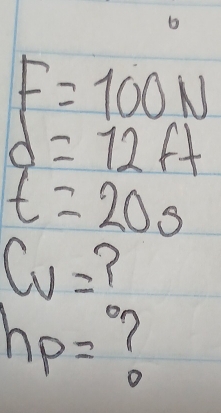 F = 100 N
d = 12 ft
t = 20 s
Cv = ?
hp = ?